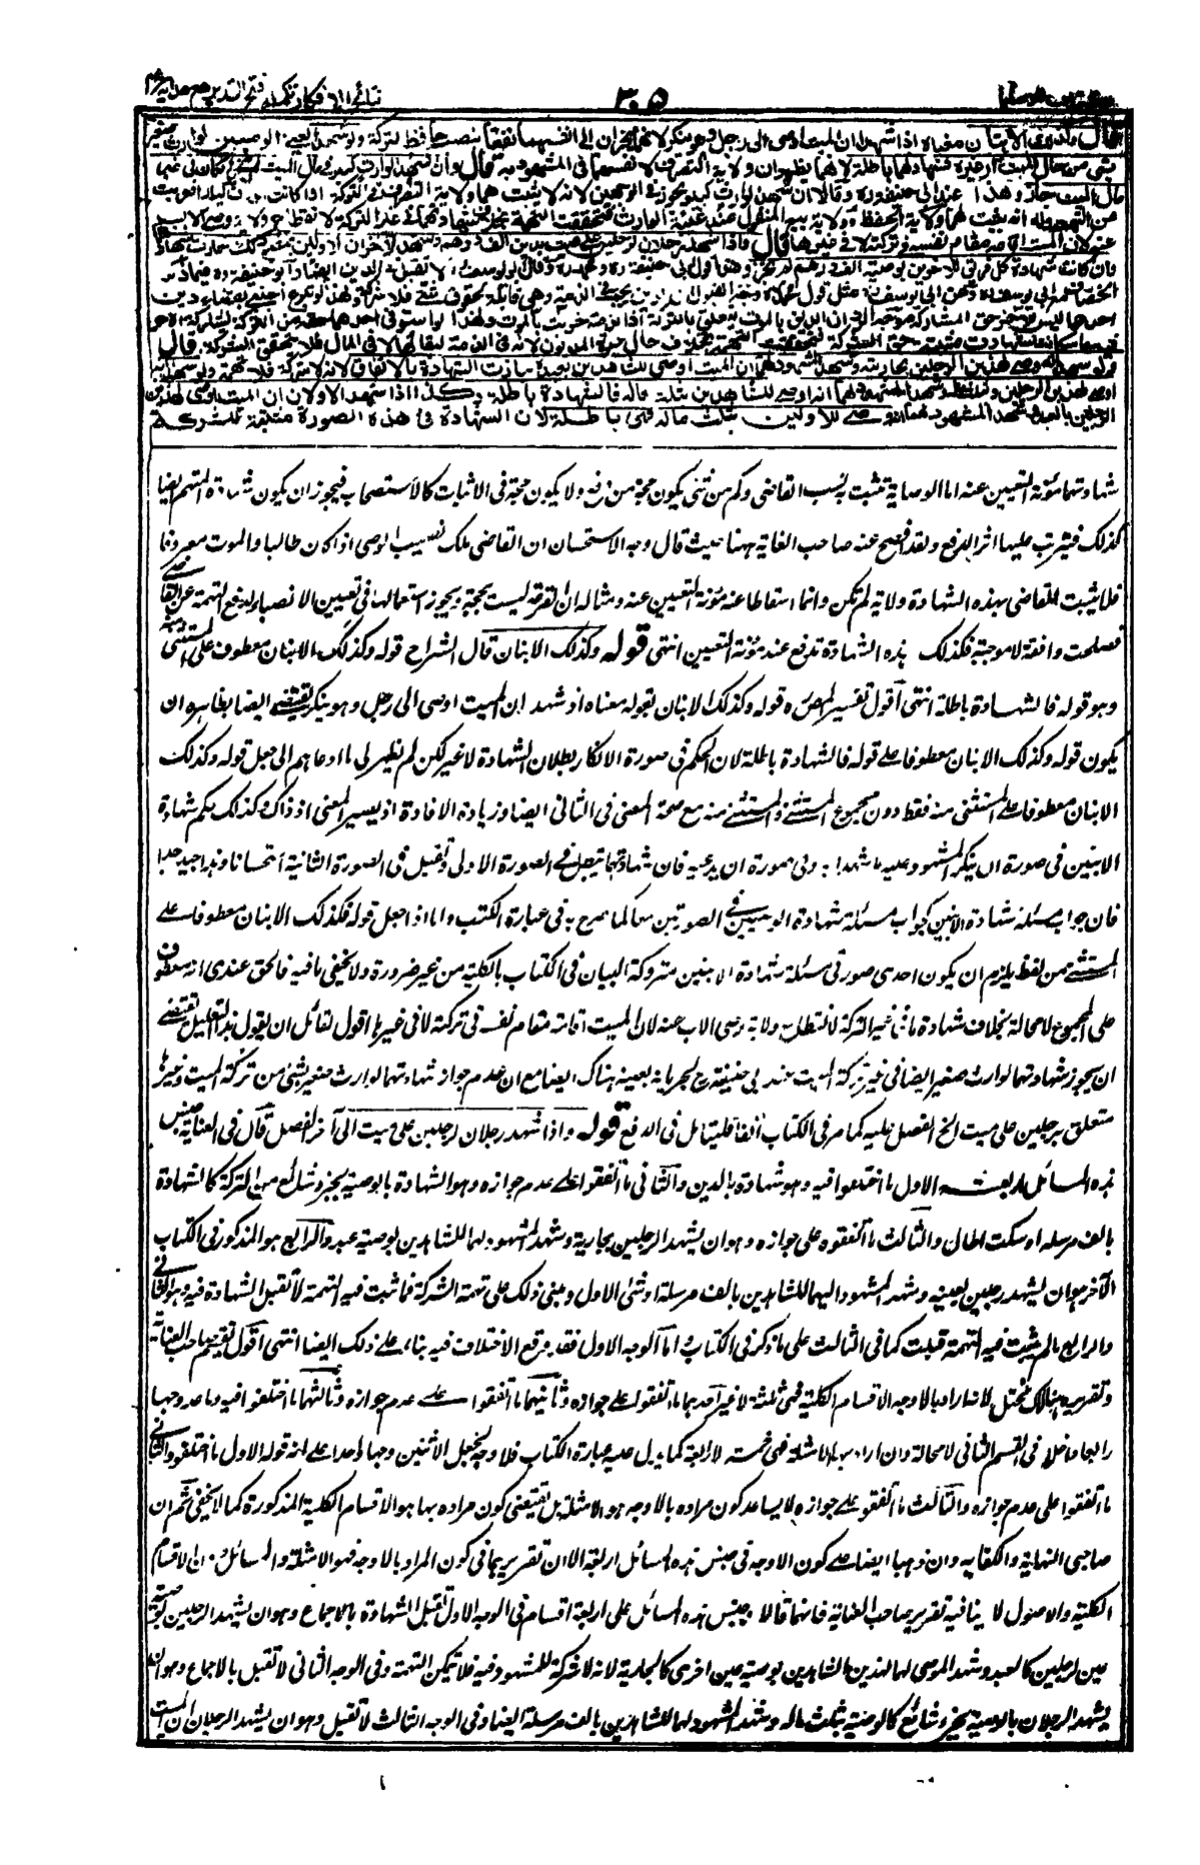 نتائج الافكار تكملہ فتح القدير مع هدايه
٣٠٥
قال وكذلك الابنان معناه اذا شهد ان الميت اوصى الى رجل وهو ينكر لانهما يجران الى انفسهما نفعا بنصب حافظ للتركة ولو شهدا يعني الوصيين لوارث صغير
بشئ من مال الميت او غيره فشهادتهما باطلة لانهما يظهران ولاية التصرف لانفسهما في المشهود به قال وان شهدا لوارث كبير في مال الميت لم يجز وان كان في غير
مال الميت جاز وهذا عند ابي حنيفة ره وقالا ان شهدا لوارث كبير تجوز في الوجهين لانه لا يثبت لهما ولاية التصرف في التركة اذا كانت الورثة كبارا فعريت
عن التهمة وله انه يثبت لهما ولاية الحفظ وولاية بيع المنقول عند غيبة الوارث فتحققت التهمة بخلاف شهادتهما في غير التركة لانقطاع ولاية وصي الاب
عنه لان الميت اقامه مقام نفسه في تركته لا في غيرها قال واذا شهد رجلان لرجلين على ميت بدين الف درهم وشهد الآخران للاولين بمثل ذلك جازت شهادتهما
وان كانت شهادة كل فريق للآخرين بوصية الف درهم لم تجز وهذا قول ابي حنيفة ره ومحمد ره وقال ابو يوسف ره لا تقبل في الدين ايضا وابو حنيفة ره فيما ذكر
الخصاف مع ابي يوسف ره وعن ابي يوسف ره مثل قول محمد ره وجه القبول ان الدين يجب في الذمة وهي قابلة لحقوق شتى فلا شركة ولهذا لو تبرع اجنبي بقضاء دين
احدهما ليس للآخر حق المشاركة وجه الرد ان الدين بالموت يتعلق بالتركة اذ الذمة خربت بالموت ولهذا لو استوفى احدهما حقه من التركة يشاركه الآخر
فيه فكانت الشهادة مثبتة حق الشركة فتحققت التهمة بخلاف حال حيوة المديون لانه في الذمة لبقائها لا في المال فلا تتحقق الشركة قال
ولو شهدا انه اوصى لهذين الرجلين بجاريته وشهد المشهود لهما ان الميت اوصى للشاهدين بعبده جازت الشهادة بالاتفاق لانه لا شركة فلا تهمة ولو شهدا انه
اوصى لهذين الرجلين بثلث ماله وشهد المشهود لهما انه اوصى للشاهدين بثلث ماله فالشهادة باطلة وكذا اذا شهد الاولان ان الميت اوصى لهذين
الرجلين بالعبد وشهد المشهود لهما انه اوصى للاولين بثلث ماله فهي باطلة لان الشهادة في هذه الصورة مثبتة للشركة
شهادتهما مؤنة التعيين عنه اما الوصاية تثبت بنصب القاضي وكم من شئ يكون حجة من دفع ولا يكون حجة في الاثبات كالاستصحاب فيجوز ان يكون شهادة المتهم ايضا
كذلك فيترتب عليها اثر الدفع ولقد افصح عنه صاحب الغاية ههنا حيث قال وجه الاستحسان ان القاضي ملك نصيب الوصي اذا كان طالبا والموت معروفا
فلا يثبت للقاضي بهذه الشهادة ولاية لم تكن وانما اسقطا عنه مؤنة التعيين عنه ومثاله ان القرعة ليست بحجة ويجوز استعمالها في تعيين الانصباء لدفع التهمة عن القاضي
فصلحت دافعة لا موجبة فكذلك هذه الشهادة تدفع عنه مؤنة التعيين انتهى قوله وكذلك الابنان قال الشراح قوله وكذلك الابنان معطوف على المستثنى منه
وهو قوله فالشهادة باطلة انتهى اقول تفسير المص ره قوله وكذلك الابنان بقوله معناه اذ شهد ابن الميت اوصى الى رجل وهو ينكر يقتضي ايضا بظاهره ان
يكون قوله وكذلك الابنان معطوفا على قوله فالشهادة باطلة لان الحكم في صورة الانكار بطلان الشهادة لا غير لكن لم يظهر لي ما دعاهم الى جعل قوله وكذلك
الابنان معطوفا على المستثنى منه فقط دون مجموع المستثنى والمستثنى منه مع صحة المعنى في الثاني ايضا وزيادة الافادة اذ يصير المعنى اذ ذاك كذلك حكم شهادة
الابنين في صورة ان ينكر المشهود عليه ما شهدا به وفي صورة ان يدعيه فان شهادتهما تبطل في الصورة الاولى وتقبل في الصورة الثانية استحسانا وهذا جيد جدا
فان جواب مسئلة شهادة الابنين كجواب مسئلة شهادة الوصيين في الصورتين معا كما صرح به في عبارة الكتب واما اذا جعل قوله فكذلك الابنان معطوفا على
المستثنى منه فقط يلزم ان يكون احدى صورتي مسئلة شهادة الابنين متروكة البيان في الكتاب بالكلية من غير ضرورة ولا يخفى ما فيه فالحق عندي انه معطوف
على المجموع لا محالة بخلاف شهادتهما في غير التركة لانقطاع ولاية وصي الاب عنه لان الميت اقامه مقام نفسه في تركته لا في غيرها اقول لقائل ان يقول هذا التعليل يقتضي
ان يجوز شهادتهما لوارث صغير ايضا في غير تركة الميت عند ابي حنيفة رح لجريانه بعينه هناك ايضا مع ان عدم جواز شهادتهما لوارث صغير بشئ من تركة الميت وغيرها
متعلق برجلين على ميت الخ المفصل عليه كما مر في الكتاب آنفا فليتامل في الدفع قوله واذا شهد رجلان لرجلين على ميت الى آخر الفصل قال في العناية جنس
هذه المسائل اربعة الاول ما اختلفوا فيه وهو شهادة بالدين والثاني ما اتفقوا على عدم جوازه وهو الشهادة بالوصية بجزء شائع من التركة كالشهادة
بالف مرسلة او ثلث المال والثالث ما اتفقوه على جوازه وهو ان يشهد الرجلين بجارية وشهد المشهود لهما للشاهدين بوصية عبد والرابع هو المذكور في الكتاب
الآخر وهو ان يشهد رجلين بعينه وشهد المشهود اليهما للشاهدين بالف مرسلة او ثلث الاول ومبنى ذلك على تهمة الشركة فما ثبت فيه التهمة لا تقبل الشهادة فيه وهو الثاني
والرابع وما لم يثبت فيه التهمة قبلت كما في الثالث على ما ذكر في الكتاب اما الوجه الاول فقد وقع الاختلاف فيه بناء على ذلك ايضا انتهى اقول تقسيم صاحب العناية
وتقريره هنالك مختل لانه اراد بالاوجه الاقسام الكلية فهي ثلثة لا غير احدها ما اتفقوا على جوازه وثانيها ما اتفقوا على عدم جوازه وثالثها ما اختلفوا فيه وما عد وجها
رابعا داخل في القسم الثاني لا محالة وان اراد بها الامثلة فهي خمسة لا اربعة كما يدل عليه عبارة الكتاب فلا وجه لجعل الاثنين وجها واحدا على انه قوله الاول ما اختلفوا والثاني
ما اتفقوا على عدم جوازه والثالث ما اتفقوا على جوازه لا يساعد كون مراده بالاوجه هو الامثلة بل يقتضي كون مراده بها هو الاقسام الكلية المذكورة كما لا يخفى ثم ان
صاحبي النهاية والكفاية وان ذهبا ايضا على كون الاوجه في جنس هذه المسائل اربعة الا ان تقريريهما في كون المراد بالاوجه هو الامثلة والمسائل دون الاقسام
الكلية والاصول لا ينافيه تقرير صاحب العناية فانهما قالا وجنس هذه المسائل على اربعة اقسام في الوجه الاول تقبل الشهادة بالاجماع وهو ان يشهد الرجلين بوصية
عين لرجلين كالعبد وشهد الموصى لهما لهذين الشاهدين بوصية عين اخرى كالجارية لانه لا شركة للمشهود فيه فلا تمكن التهمة وفي الوجه الثاني لا تقبل بالاجماع وهو ان
يشهد الرجلان بالوصية بجزء شائع كالوصية بثلث ماله وشهد المشهود لهما للشاهدين بالف مرسلة ايضا وفي الوجه الثالث لا تقبل وهو ان يشهد الرجلان ان الميت